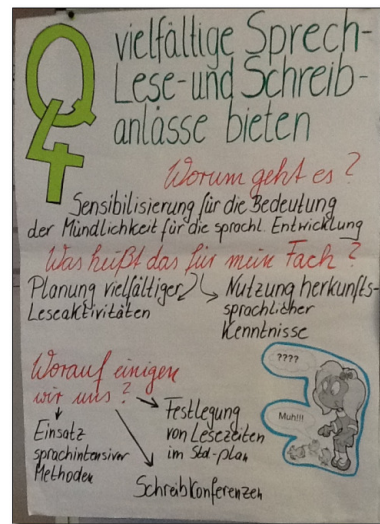 Q4
vielfältige Sprech-
Lese- und Schreib-
anlässe bieten
Worum geht es?
Sensibilisierung für die Bedeutung
der Mündlichkeit für die sprachl. Entwicklung
Was heißt das für mein Fach?
Planung vielfältiger
Leseaktivitäten
Nutzung herkunfts-
sprachlicher
Kenntnisse
Worauf einigen
wir uns?
Einsatz
sprachintensiver
Methoden
Festlegung
von Lesezeiten
im Std-plan
Schreibkonferenzen
????
Muh!!!